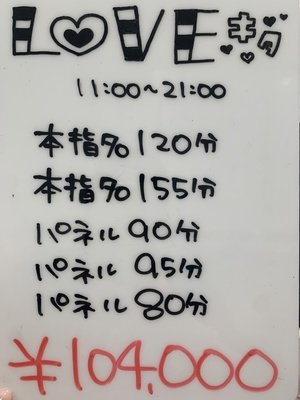 LOVE
11:00~21:00
本指名120分
本指名155分
パネル90分
パネル95分
パネル80分
¥104,000